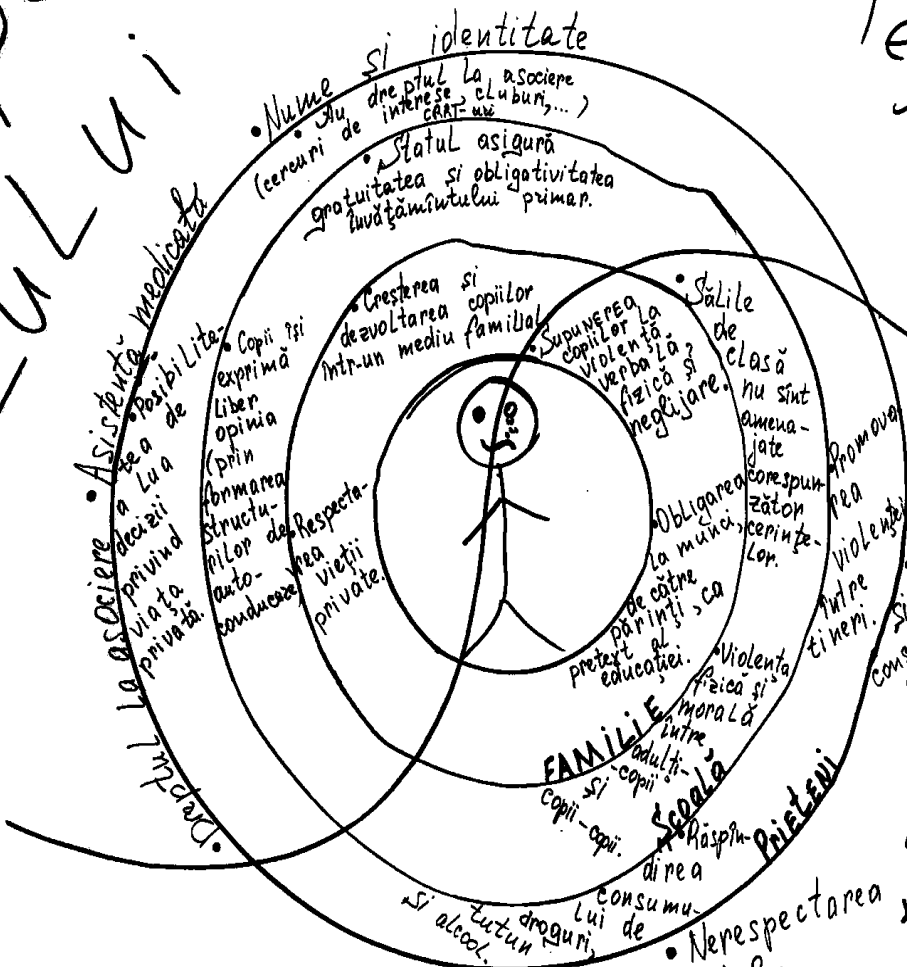 ULUI
• Nume și identitate
• Au dreptul la asociere
(cercuri de interese, cluburi,...)
• Statul asigură
gratuitatea și obligativitatea
învățămîntului primar.
• Asistență medicală
• Dreptul la asociere
• Posibilita-
tea de
a lua
decizii
privind
viața
privată.
• Copii își
exprimă
liber
opinia
(prin
formarea
structu-
rilor de
auto-
conducere)
• Creșterea și
dezvoltarea copiilor
într-un mediu familial
• Respecta-
rea
vieții
private.
• Supunerea
copiilor la
violență
verbală,
fizică și
neglijare.
• Obligarea
la munci,
de către
părinți, ca
pretext al
educației.
FAMILIE
• Sălile
de
clasă
nu sînt
amena-
jate
corespun-
zător
cerințe-
lor.
• Violența
fizică și
morală
între
adulți-
copii și
copii-copii.
Școală
Promova-
rea
violenței
între
tineri.
• Răspîn-
direa
consumu-
lui de
droguri,
tutun
și alcool.
PRIETENI
și
cons
• Nerespectarea